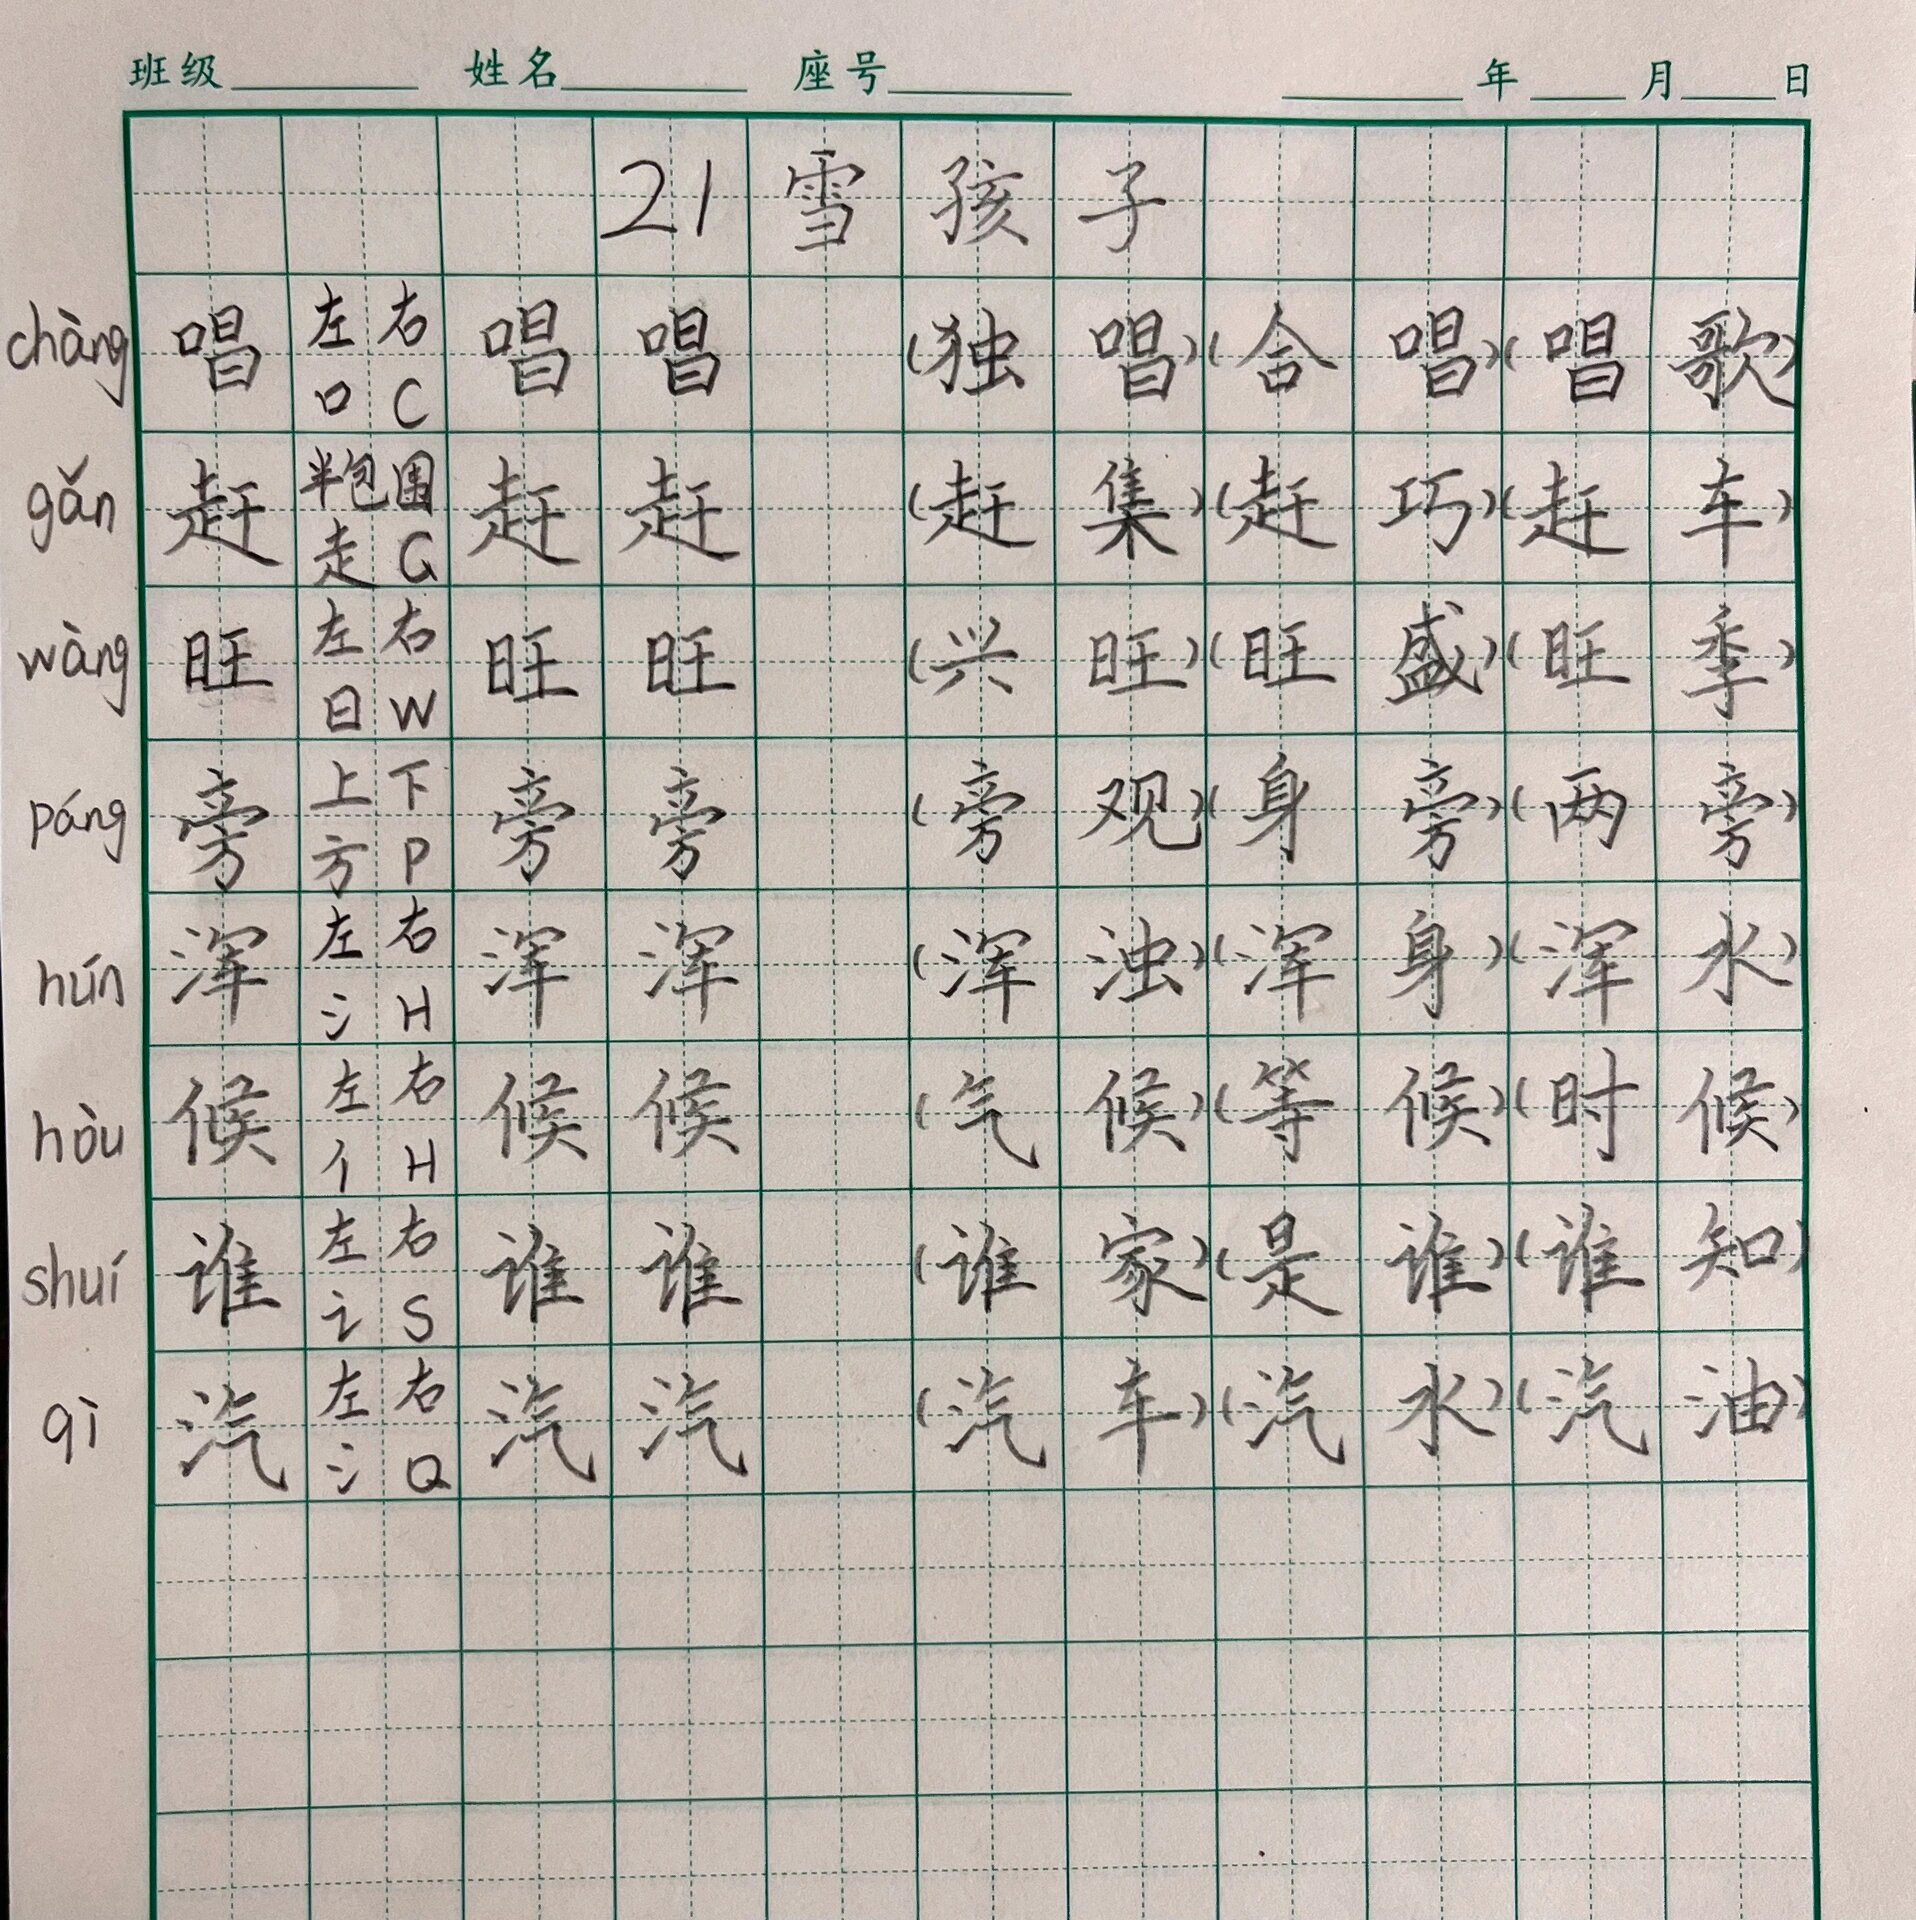 班级 姓名 座号 年 月 日
21 雪孩子
chàng 唱 左右 口 C 唱 唱 (独唱)(合唱)(唱歌)
gǎn 赶 半包围 走 G 赶 赶 (赶集)(赶巧)(赶车)
wàng 旺 左右 日 W 旺 旺 (兴旺)(旺盛)(旺季)
páng 旁 上下 方 P 旁 旁 (旁观)(身旁)(两旁)
hún 浑 左右 氵 H 浑 浑 (浑浊)(浑身)(浑水)
hòu 候 左右 亻 H 候 候 (气候)(等候)(时候)
shuí 谁 左右 讠 S 谁 谁 (谁家)(是谁)(谁知)
qì 汽 左右 氵 Q 汽 汽 (汽车)(汽水)(汽油)